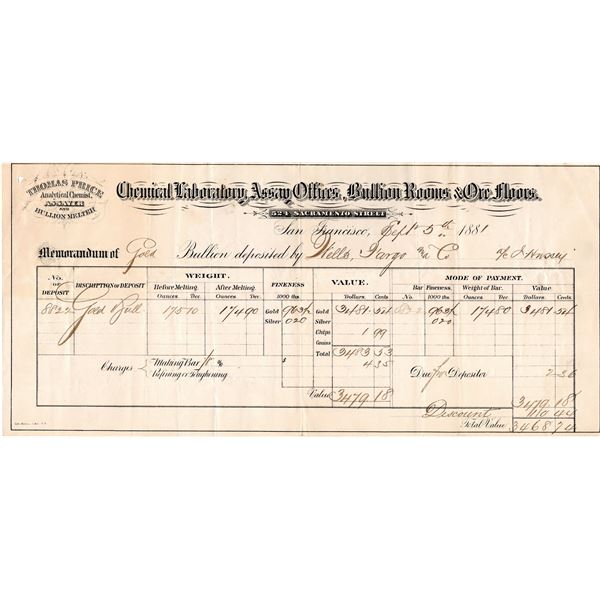 THOMAS PRICE
Analytical Chemist,
ASSAYER
AND
BULLION MELTER
Chemical Laboratory, Assay Offices, Bullion Rooms & Ore Floors.
524 SACRAMENTO STREET
San Francisco, Sept 5th 1881
Memorandum of Gold Bullion deposited by Wells, Fargo & Co
No. OF DEPOSIT DISCRIPTION OF DEPOSIT WEIGHT. FINENESS VALUE. MODE OF PAYMENT.
Before Melting. After Melting. 1000 ths Dollars. Cents Bar No. Fineness. 1000 ths Weight of Bar. Value
Ounces Dec. Ounces Dec. Ounces. Dec. Dollars. Cents
8822 Gold Bull 175 70 174 90 Gold Gold 3481 174 80 3481
Silver 020 Silver 1 99 020
Chips
Grains
Total 3483 53
Charges Making Bar % $ 4 35 Due for Depositor
Refining or Toughening
Value 3479 18 3479 18
Discount 10 44
Total Value 3468 74